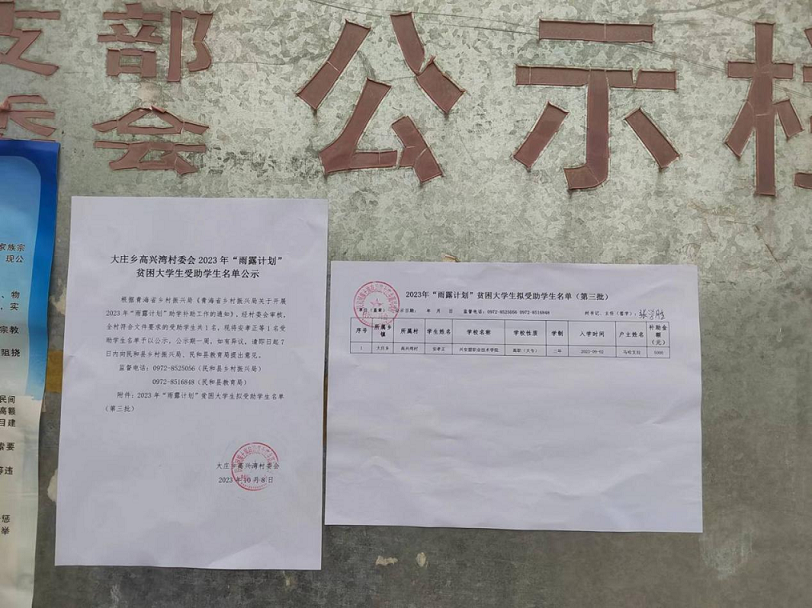 支部
委会
公示栏
家族宗
现公
物
实
宗教
阻挠
民间
高额
目建
索要
等违
惩
举
大庄乡高兴湾村委会 2023 年“雨露计划”
贫困大学生受助学生名单公示
根据青海省乡村振兴局《青海省乡村振兴局关于开展
2023 年“雨露计划”助学补助工作的通知》，经村委会审核，
全村符合文件要求的受助学生共 1 名，现将安孝正等 1 名受
助学生名单予以公示，公示期一周，如有异议，请即日起 7
日内向民和县乡村振兴局、民和县教育局提出意见。
监督电话：0972-8525056（民和县乡村振兴局）
0972-8516848（民和县教育局）
附件：2023 年“雨露计划”贫困大学生拟受助学生名单
（第三批）
大庄乡高兴湾村委会
2023 年 10 月 8 日
2023年“雨露计划”贫困大学生拟受助学生名单（第三批）
单位（盖章） 公示日期： 年 月 日 监督电话：0972-8525056 0972-8516848 村书记、主任（签字）：
序号 所属乡镇 所属村 学生姓名 学校名称 学校性质 学制 入学时间 户主姓名 补助金额（元）
1 大庄乡 高兴湾村 安孝正 职业技术学院 高职（大专） 三年 2022-09-02 5000